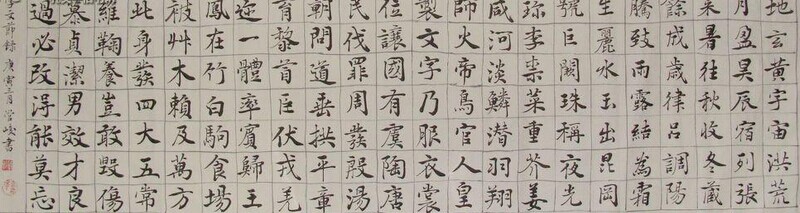 地玄黃宇宙洪荒
月盈昃辰宿列張
來暑往秋收冬藏
餘成歲律呂調陽
騰致雨露結為霜
生麗水玉出昆岡
號巨闕珠稱夜光
珍李柰菜重芥姜
咸河淡鱗潛羽翔
師火帝鳥官人皇
製文字乃服衣裳
位讓國有虞陶唐
民伐罪周發殷湯
朝問道垂拱平章
育黎首臣伏戎羌
迩一體率賓歸王
鳳在竹白駒食場
被艸木賴及萬方
此身發四大五常
維鞠養豈敢毀傷
慕貞潔男效才良
過必改得能莫忘
字文節錄 庚寅三月管峻書